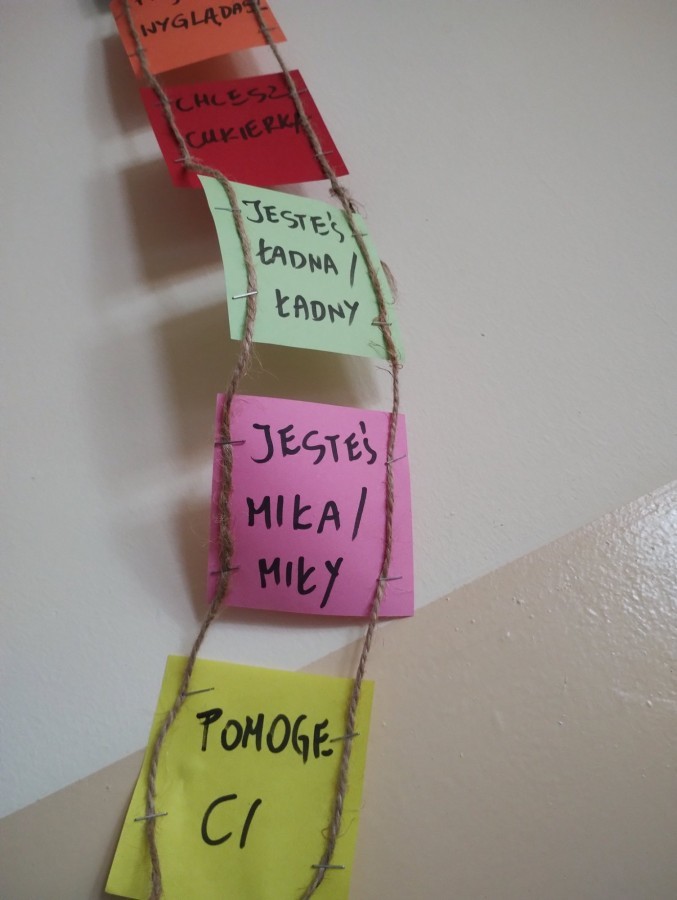 WYGLĄDASZ
CHCESZ
CUKIERKA
JESTEŚ
ŁADNA /
ŁADNY
JESTEŚ
MIŁA /
MIŁY
POMOGĘ
CI